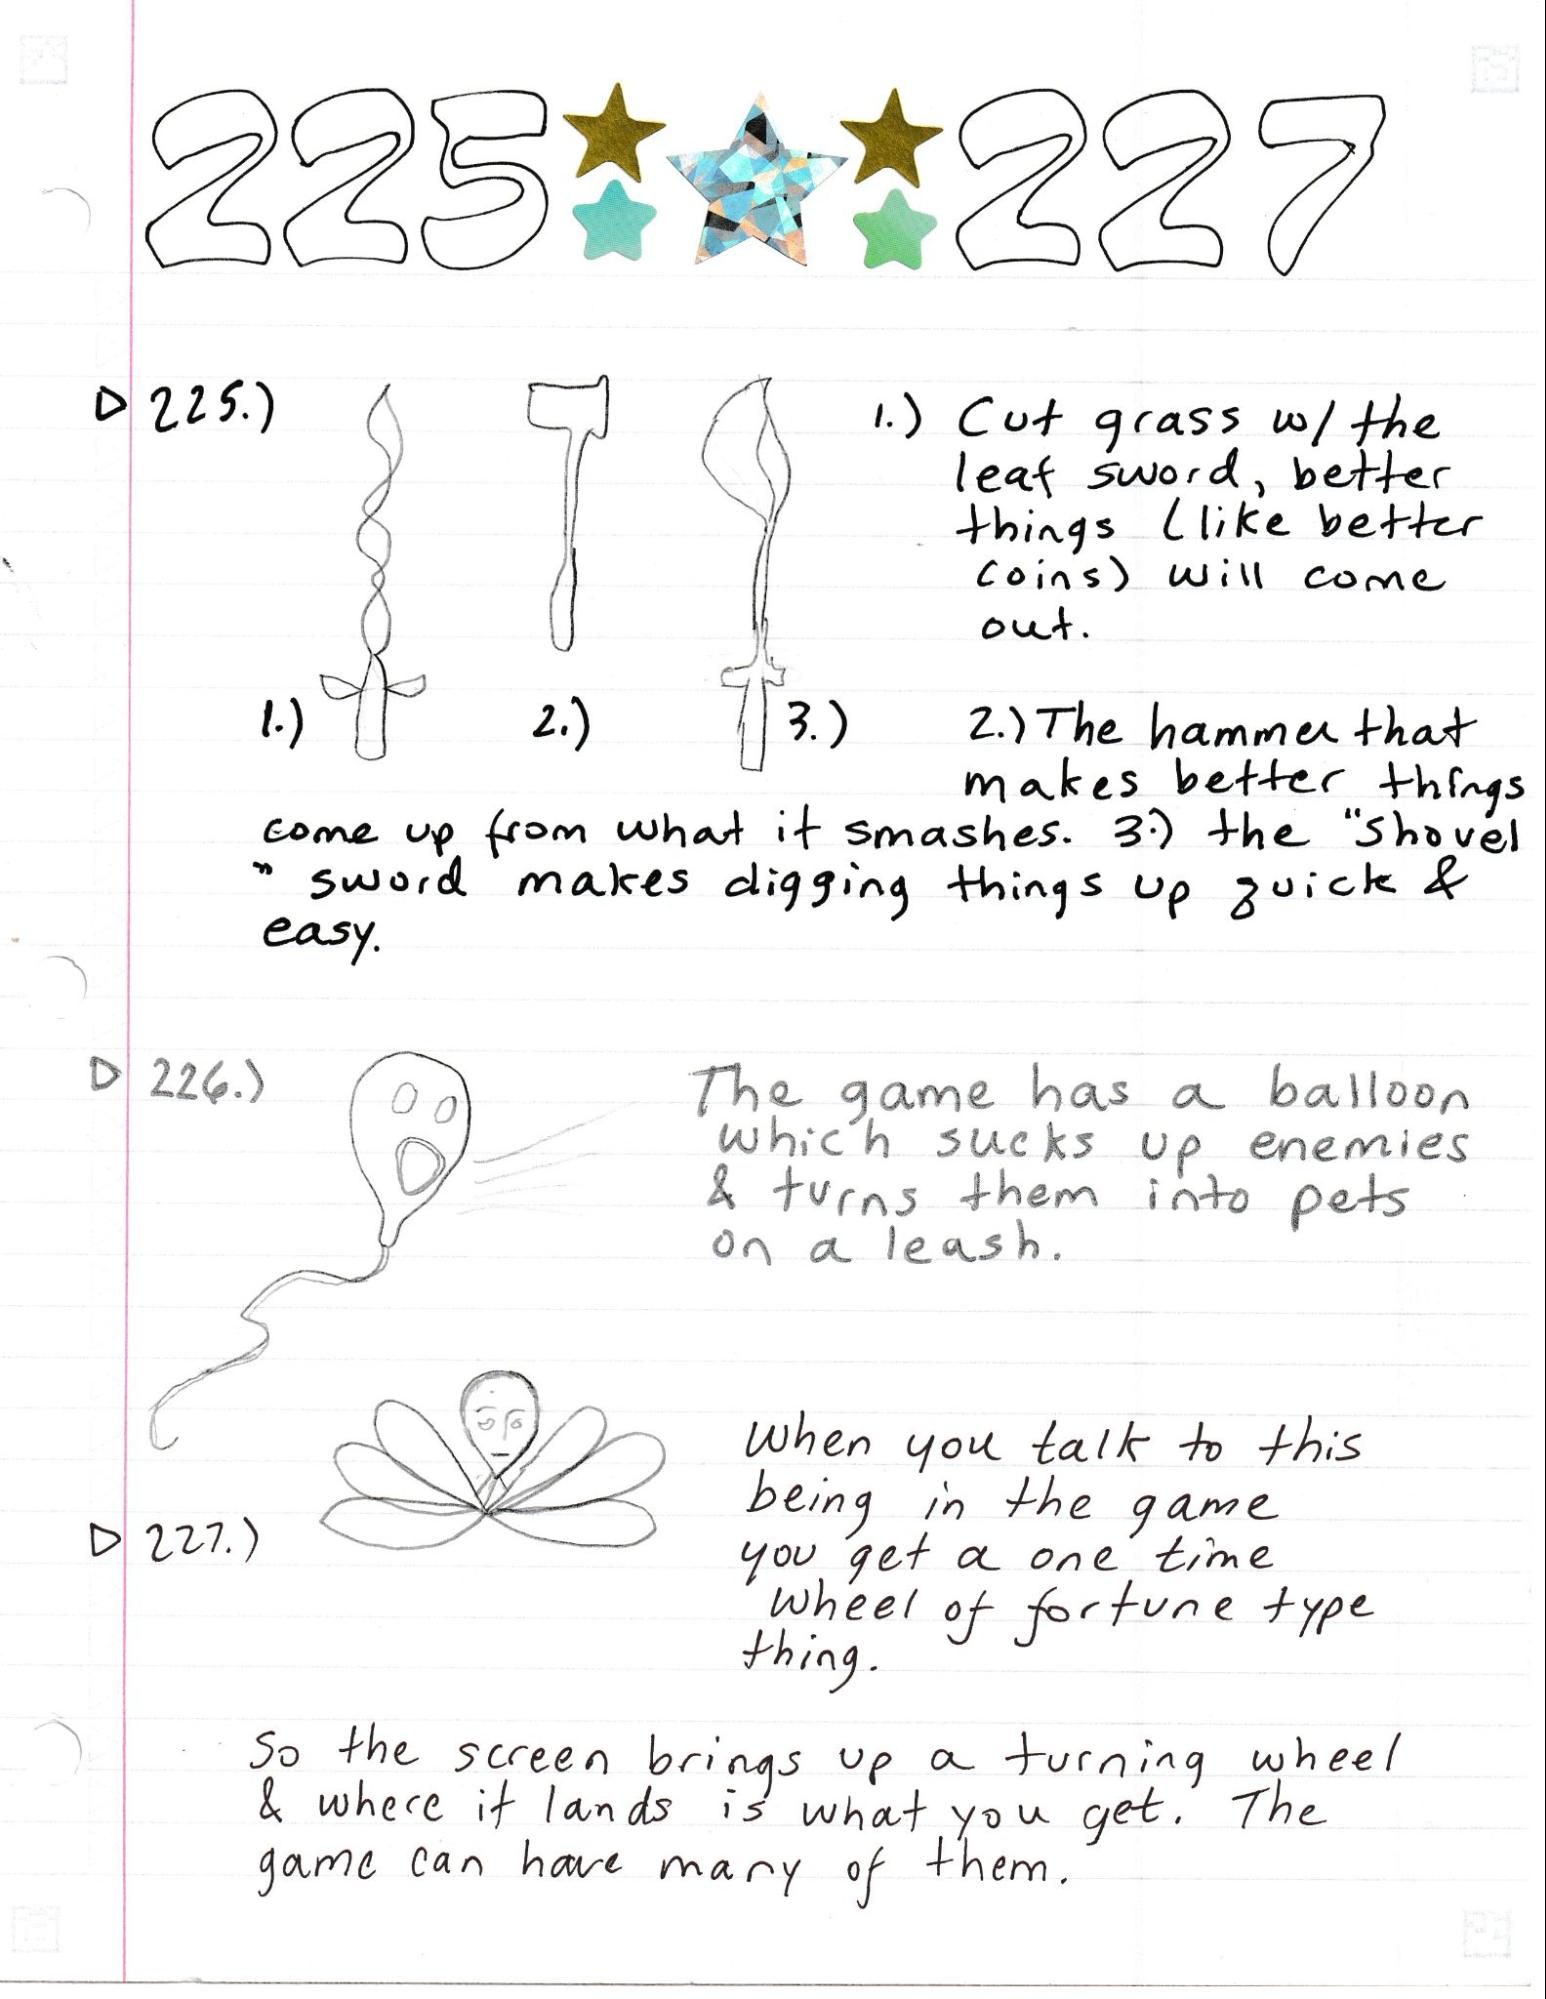 225 227
225.)
1.) Cut grass w/ the
leaf sword, better
things (like better
coins) will come
out.
1.) 2.) 3.)
2.) The hammer that
makes better things
come up from what it smashes. 3.) the "Shovel
" sword makes digging things up quick &
easy.
226.)
The game has a balloon
which sucks up enemies
& turns them into pets
on a leash.
227.)
When you talk to this
being in the game
you get a one time
wheel of fortune type
thing.
So the screen brings up a turning wheel
& where it lands is what you get. The
game can have many of them.